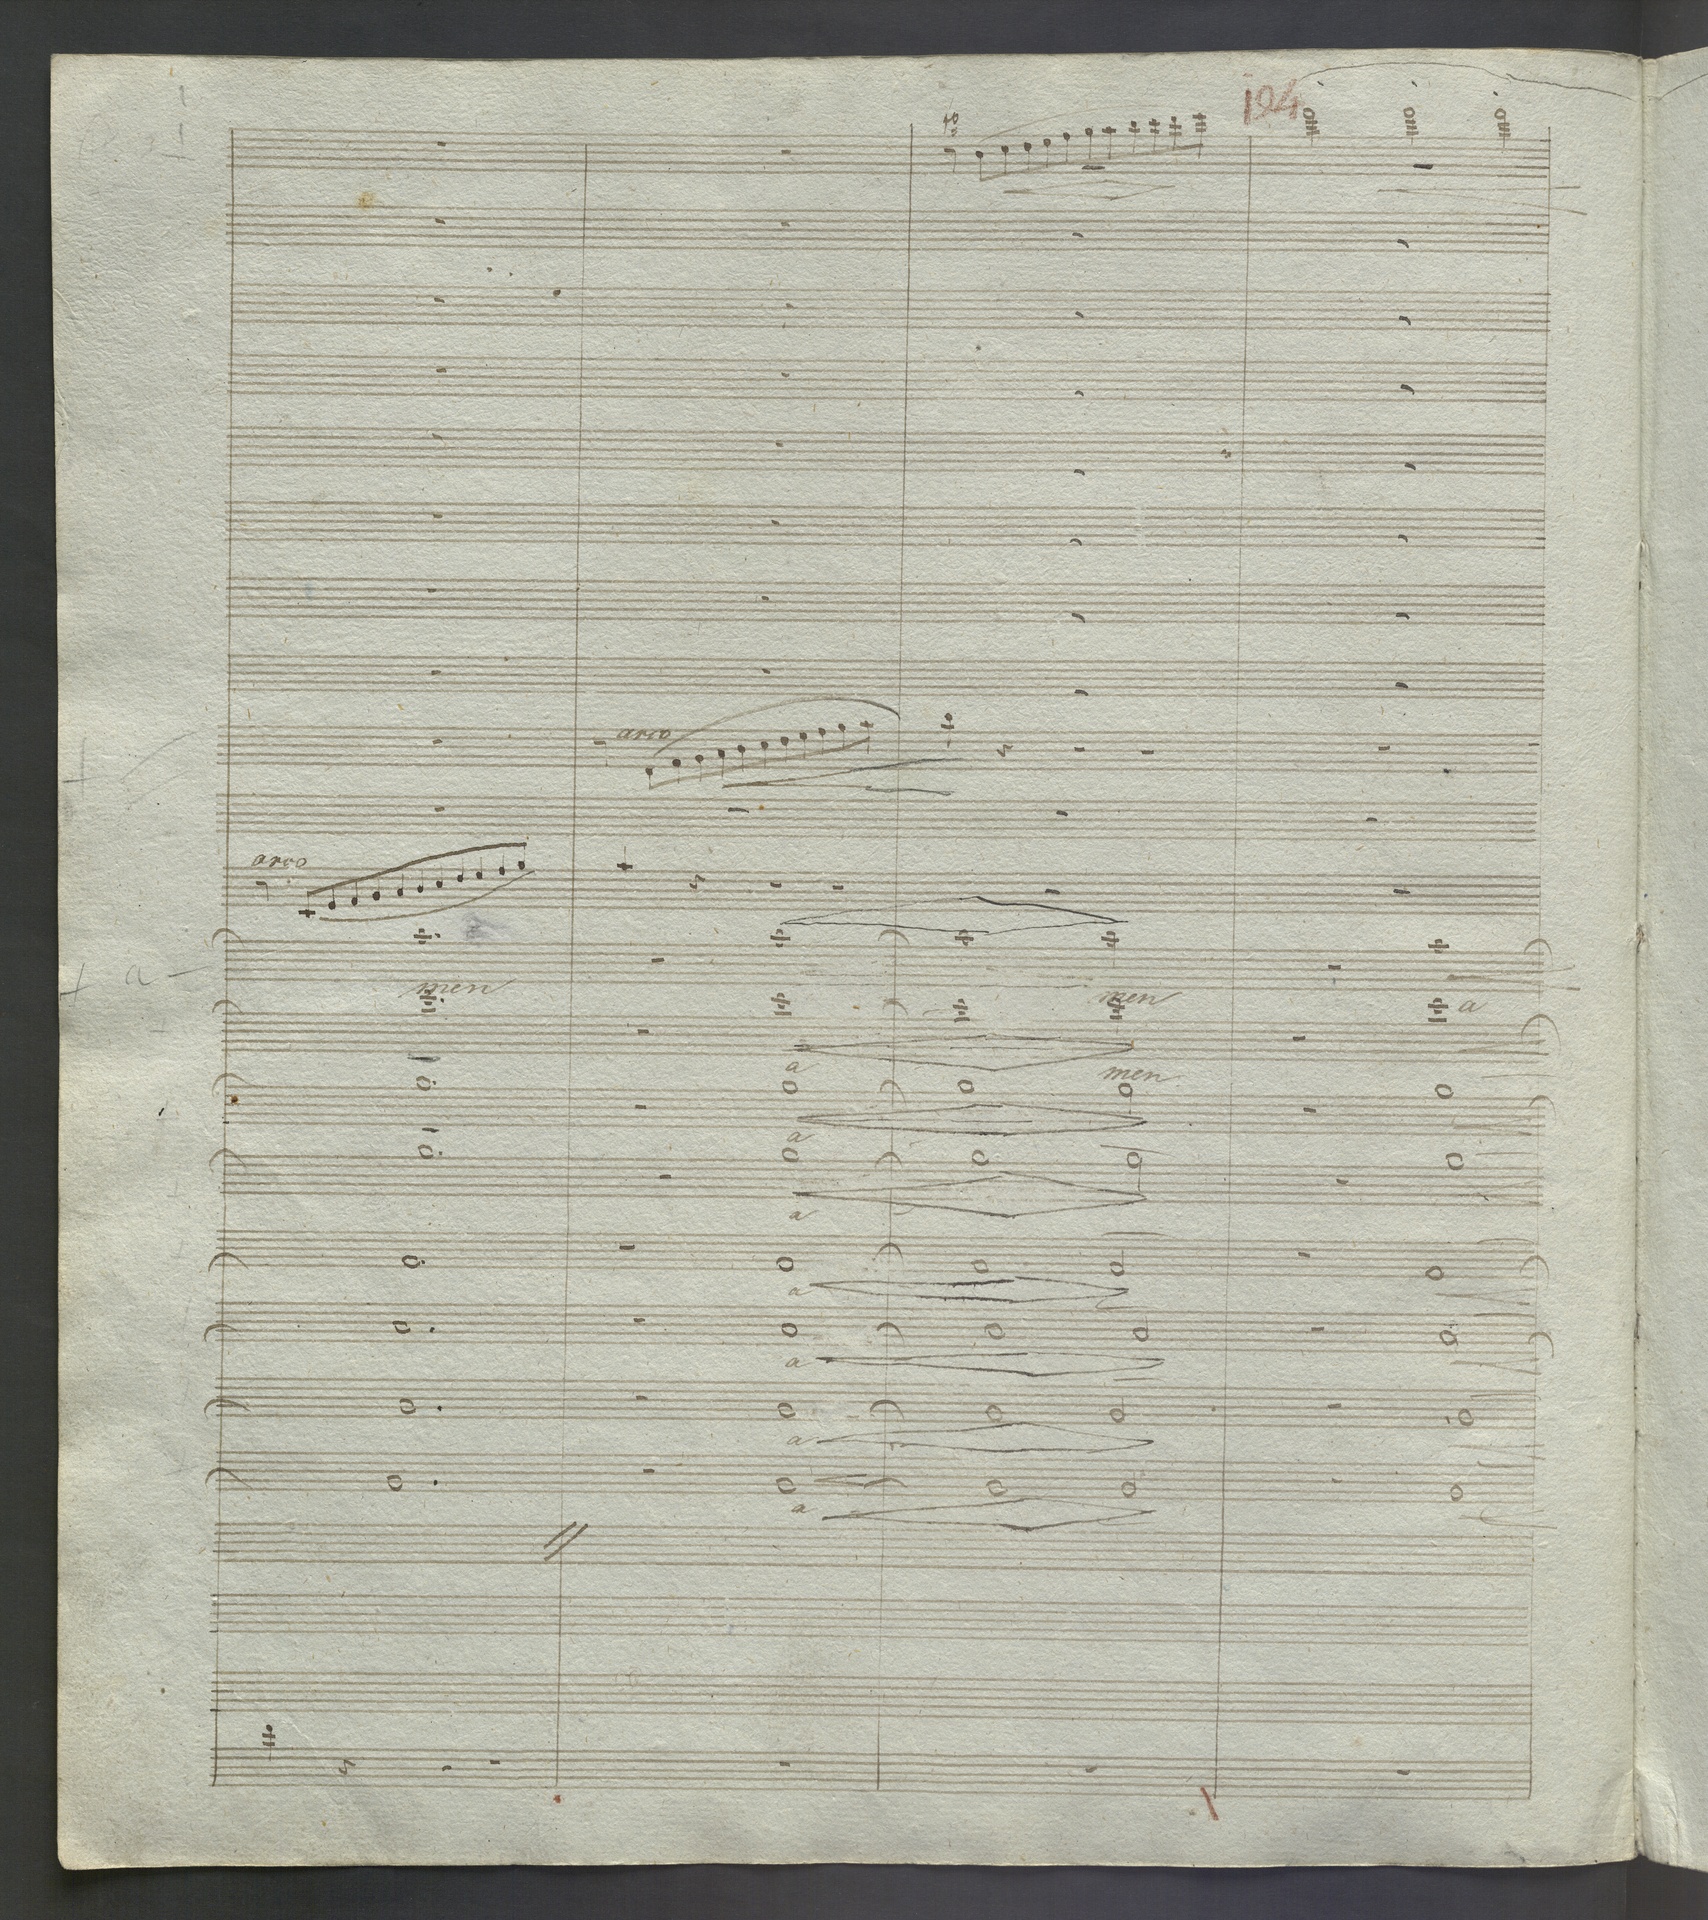 194
arco
arco
men
men
a
a
men
a
a
a
a
a
a